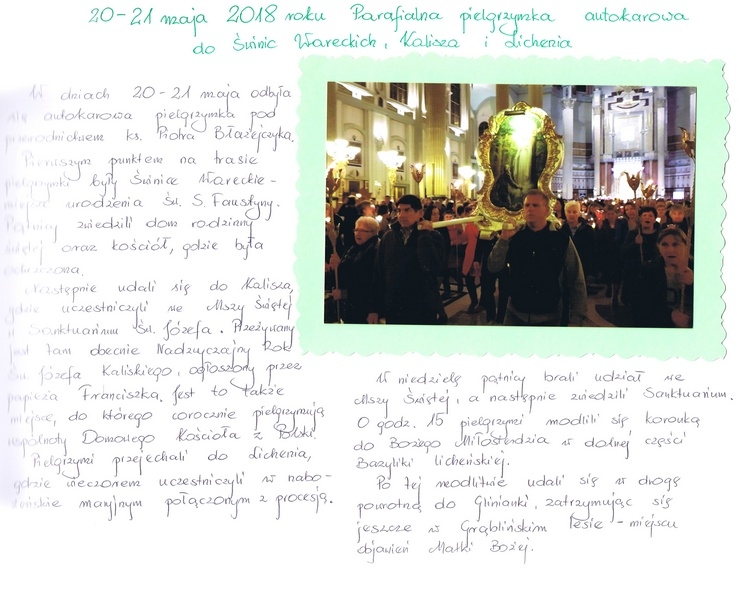 20-21 maja 2018 roku Parafialna pielgrzymka autokarowa
do Świnic Wareckich, Kalisza i Lichenia
W dniach 20-21 maja odbyła
się autokarowa pielgrzymka pod
przewodnictwem ks. Piotra Błażejczyka.
Pierwszym punktem na trasie
pielgrzymki były Świnice Wareckie-
miejsce urodzenia Św. S. Faustyny.
Pątnicy zwiedzili dom rodzinny
świętej oraz kościół, gdzie była
ochrzczona.
Następnie udali się do Kalisza,
gdzie uczestniczyli we Mszy Świętej
w Sanktuarium Św. Józefa. Przeżywany
jest tam obecnie Nadzwyczajny Rok
Św. Józefa Kaliskiego, ogłoszony przez
papieża Franciszka. Jest to także
miejsce, do którego corocznie pielgrzymują
wspólnoty Domowego Kościoła z Polski.
Pielgrzymi przejechali do Lichenia,
gdzie wieczorem uczestniczyli w nabo-
żeństwie maryjnym połączonym z procesją.
W niedzielę pątnicy brali udział we
Mszy Świętej, a następnie zwiedzili Sanktuarium.
O godz. 15 pielgrzymi modlili się koronką
do Bożego Miłosierdzia w dolnej części
Bazyliki licheńskiej.
Po tej modlitwie udali się w drogę
powrotną do Glinianki, zatrzymując się
jeszcze w Grąblińskim lesie - miejscu
objawień Matki Bożej.